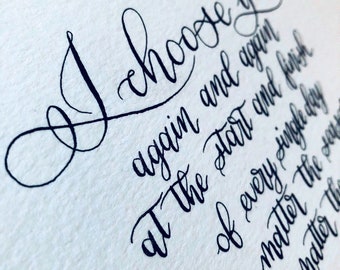 I choose y
again and again
at the start and finish
of every single day
matter the seas
matter the